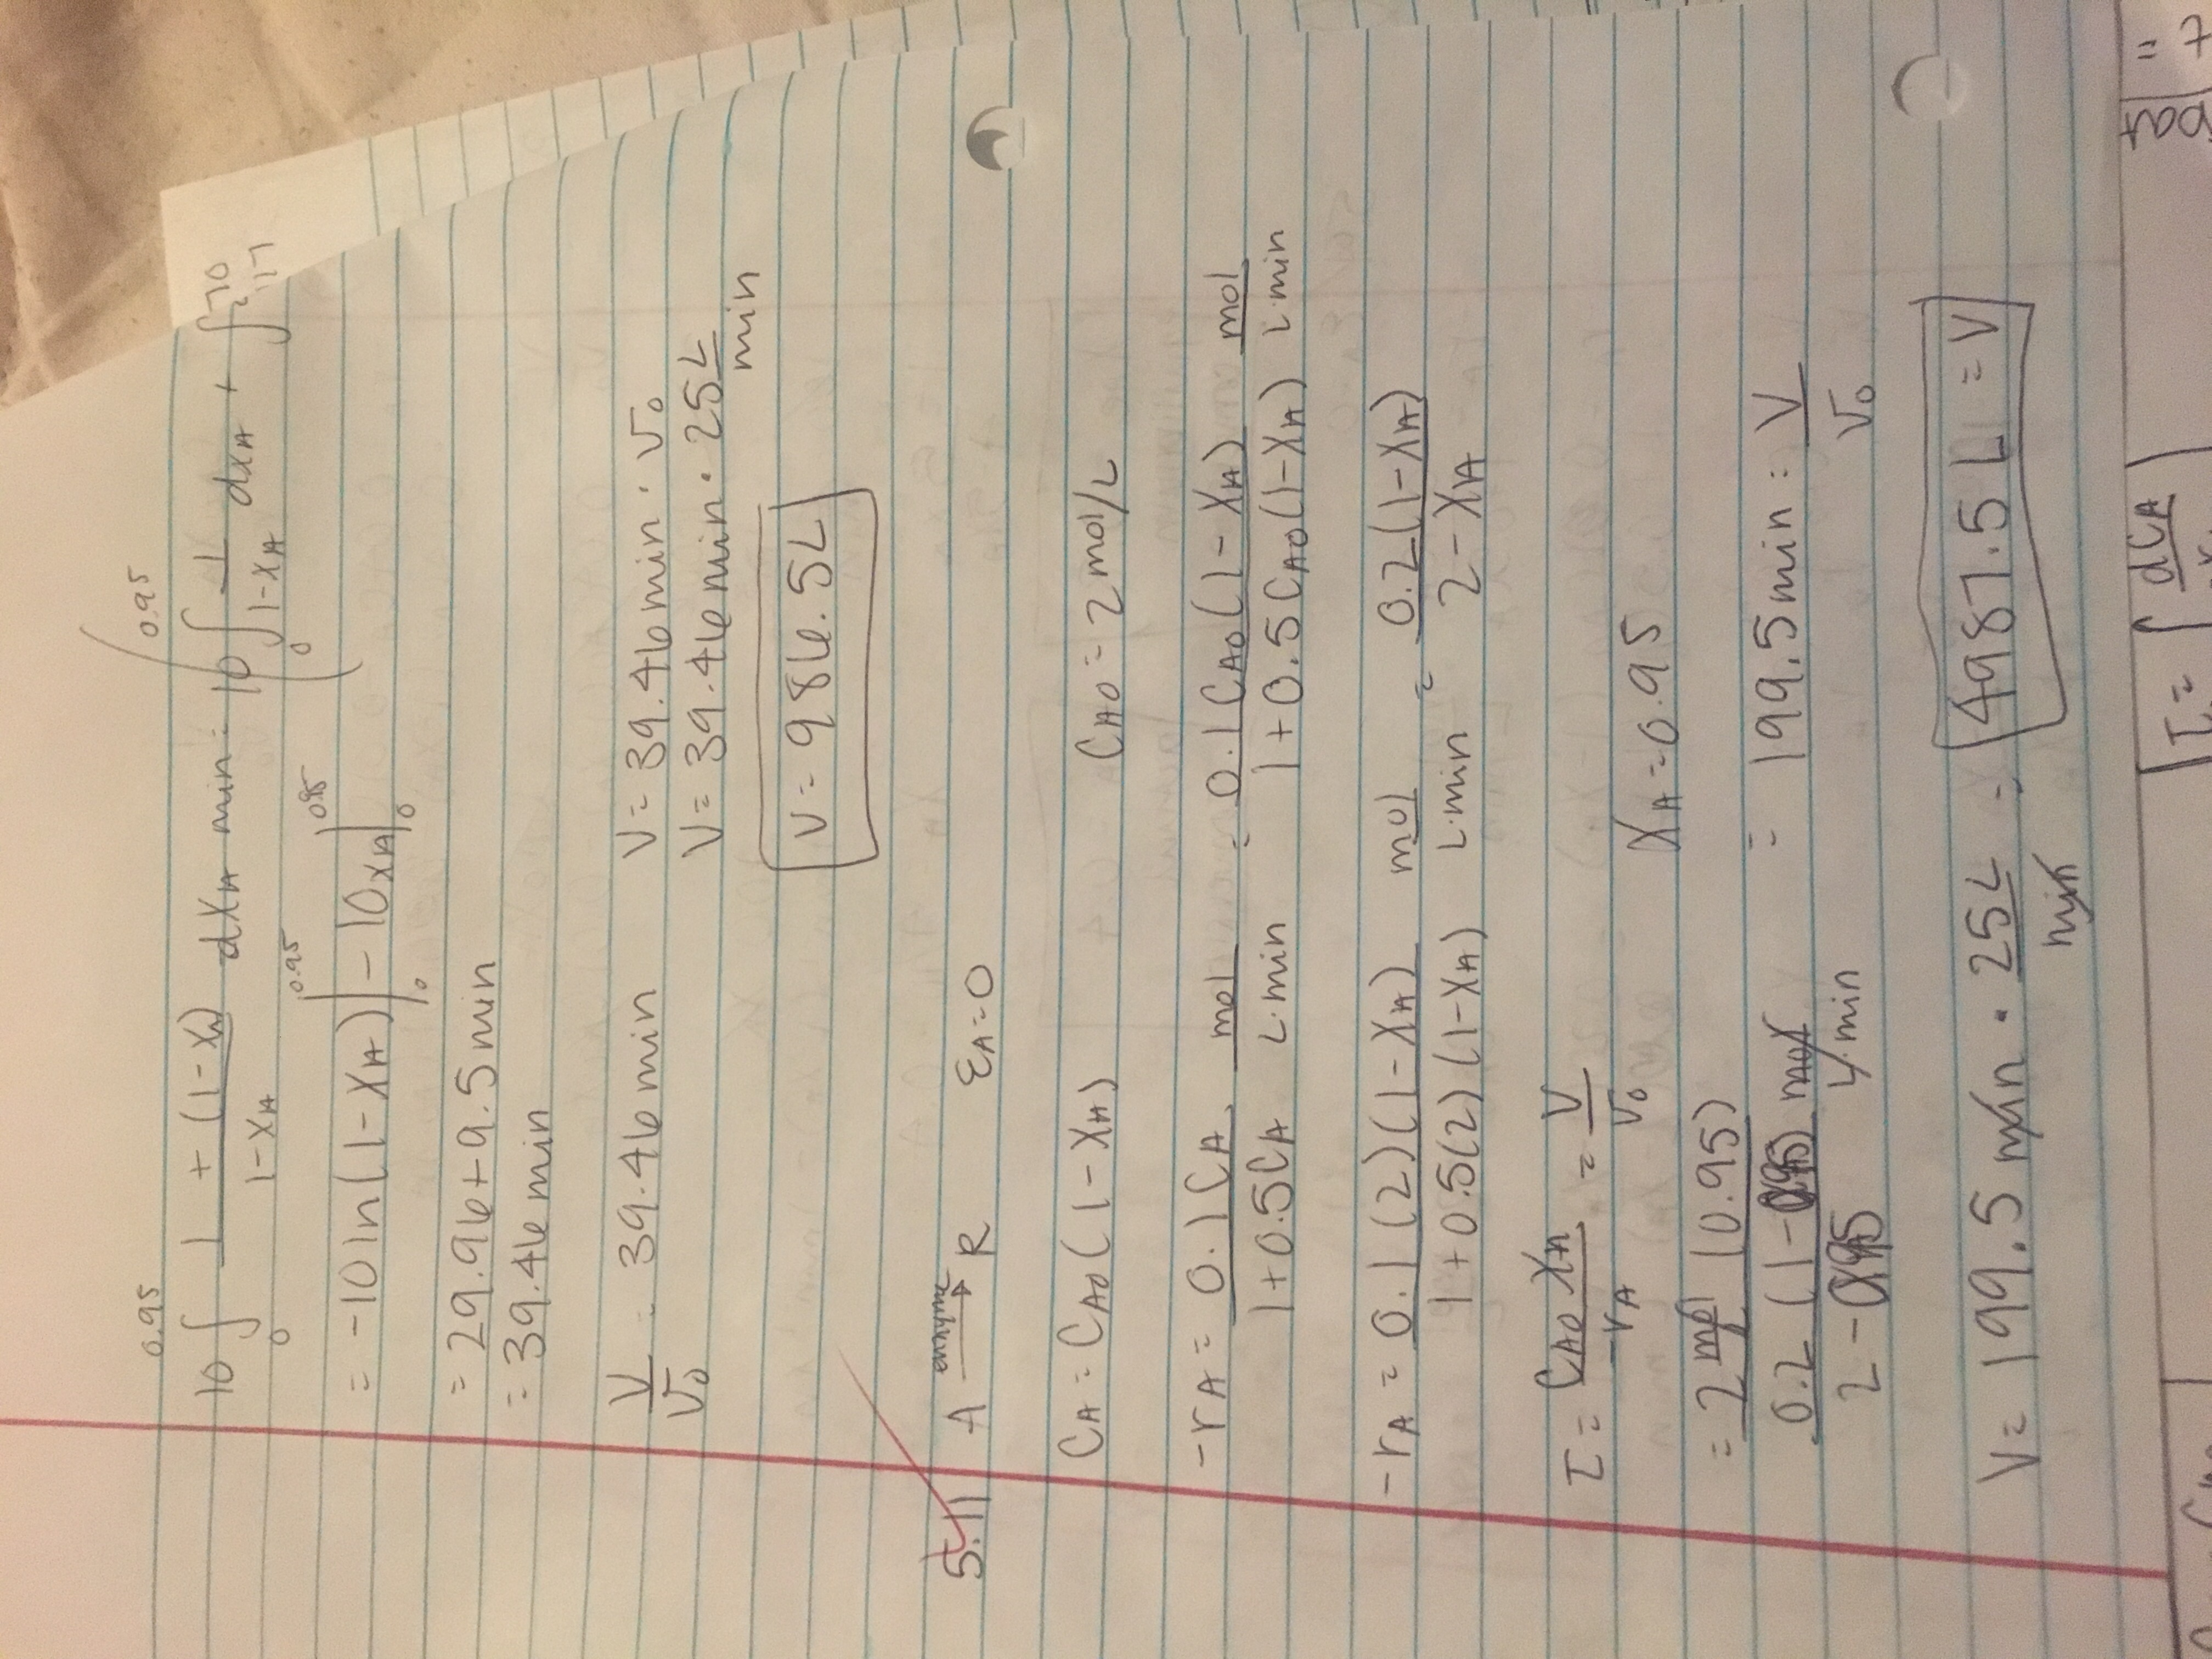 10 ∫₀^0.95 (1 + (1-XA))/(1-XA) dXA min = 10 ( ∫₀^0.95 1/(1-XA) dXA + ∫
= -10 ln(1-XA)|₀^0.95 - 10XA|₀^0.95
= 29.96 + 9.5 min
= 39.46 min
V/v₀ = 39.46 min
V = 39.46 min · v₀
V = 39.46 min · 25 L/min
V = 986.5 L
5.11 A enzyme→ R εA = 0
CA = CA0(1-XA) CA0 = 2 mol/L
-rA = 0.1CA/(1+0.5CA) mol/(L·min) = 0.1CA0(1-XA)/(1+0.5CA0(1-XA)) mol/(L·min)
-rA = 0.1(2)(1-XA)/(1+0.5(2)(1-XA)) mol/(L·min) = 0.2(1-XA)/(2-XA)
τ = CA0 XA/(-rA) = V/v₀
XA = 0.95
= 2 mol/L (0.95) / (0.2(1-0.95)/(2-0.95) mol/(L·min)) = 199.5 min = V/v₀
V = 199.5 min · 25 L/min = 4987.5 L = V
τ = ∫ dCA
t =